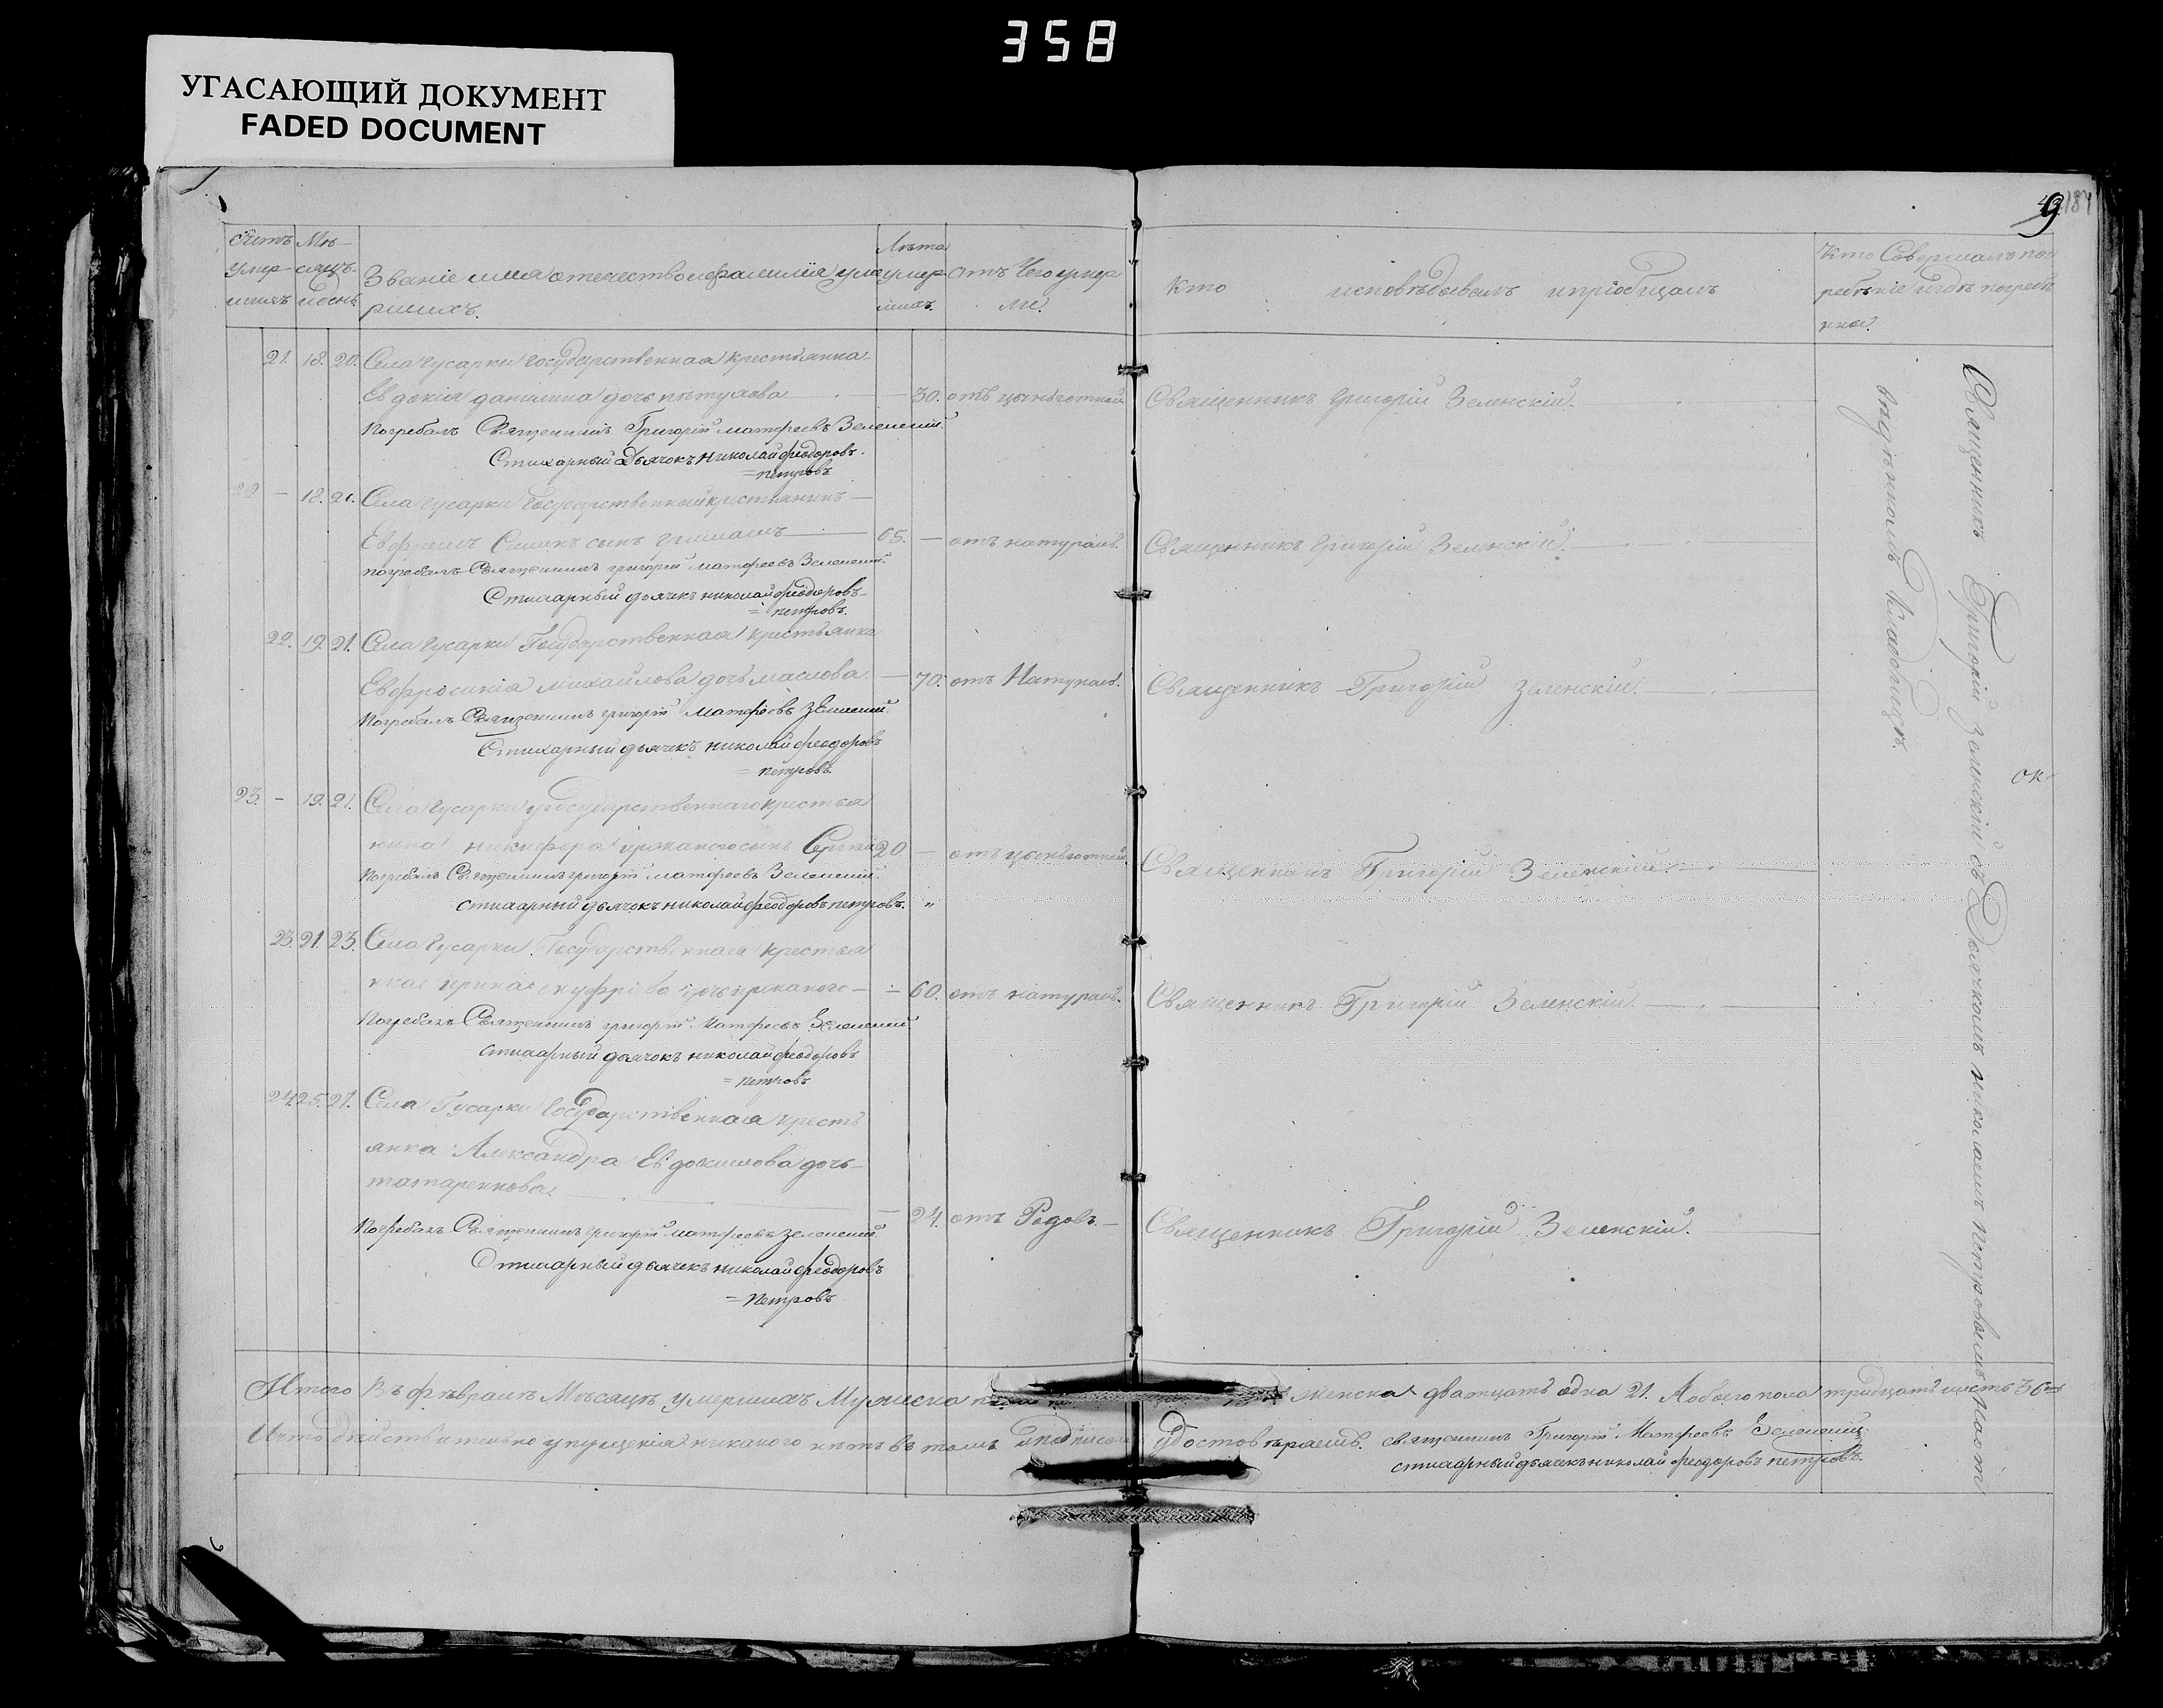 358
УГАСАЮЩИЙ ДОКУМЕНТ
FADED DOCUMENT
9 184
Счетъ умер-шихъ
Мѣ-сяцъ и день
Званіе имя отечество и фамилія уме
ршихъ.
Лѣта умер шихъ.
отъ Чего умер
ли.
Кто исповѣдывалъ и пріобщалъ
Кто Совершалъ пог
ребѣніе и гдѣ погребѣ
нны.
21. 18. 20. Села Гусарки Государственная крестьянка
Евдокія данилина дочь пѣтухова 30. отъ цынготной Священникъ Григорій Зеленскій.
Погребалъ Священникъ Григорій матфеевъ Зеленскій.
Стихарный Дьячокъ Николай феодоровъ
= петровъ
22 — 18. 21. Села Гусарки Государственный крестьянинъ —
Евфремъ сынъ 65. — отъ натурал. Священникъ Григорій Зеленскій.
погребалъ Священникъ григорій матфеевъ Зеленскій.
Стихарный дьячекъ николай феодоровъ
= петровъ.
22. 19. 21. Села Гусарки Государственная крестьянка
Евфросинія михайлова дочь маслова. — 70. отъ Натурал. Священникъ Григорій Зеленскій.
Погребалъ Священникъ григорій матфеевъ Зеленскій.
Стихарный дьячекъ николай феодоровъ
= петровъ.
23. — 19. 21. Села Гусарки государственнаго крестья
нина никифора сынъ Сергій 20 — отъ цынготной Священникъ Григорій Зеленскій.
Погребалъ Священникъ григорій матфеевъ Зеленскій.
стихарный дьячокъ николай феодоровъ петровъ. "
23. 21. 23. Села Гусарки Государственная крестья
нка ирина дочь — 60. отъ натурал. Священникъ Григорій Зеленскій.
Погребалъ Священникъ григорій Матфеевъ Зеленскій
стихарный дьячокъ николай феодоровъ
= петровъ
24. 25. 27. Села Гусарки Государственная кресть
янка Александра Евдокимова дочь
татаренкова. — 24. отъ Родовъ — Священникъ Григорій Зеленскій.
Погребалъ Священникъ григорій матфеевъ Зеленскій.
Стихарный дьячекъ николай феодоровъ
= Петровъ
Священникъ Григорій Зеленскій съ Дьячкомъ николаемъ петровымъ
кладбищѣ.
ок
Итого Въ фѣвралѣ Мѣсяцѣ умершихъ Мужеска женска двадцать одна 21. А обоего пола тридцать шесть 36
Что дѣйствительно упущенія никакого нѣтъ въ томъ и подписомъ Удостовѣряемъ. священникъ Григорій Матфеевъ Зеленскій
стихарный дьячекъ николай феодоровъ петровъ.